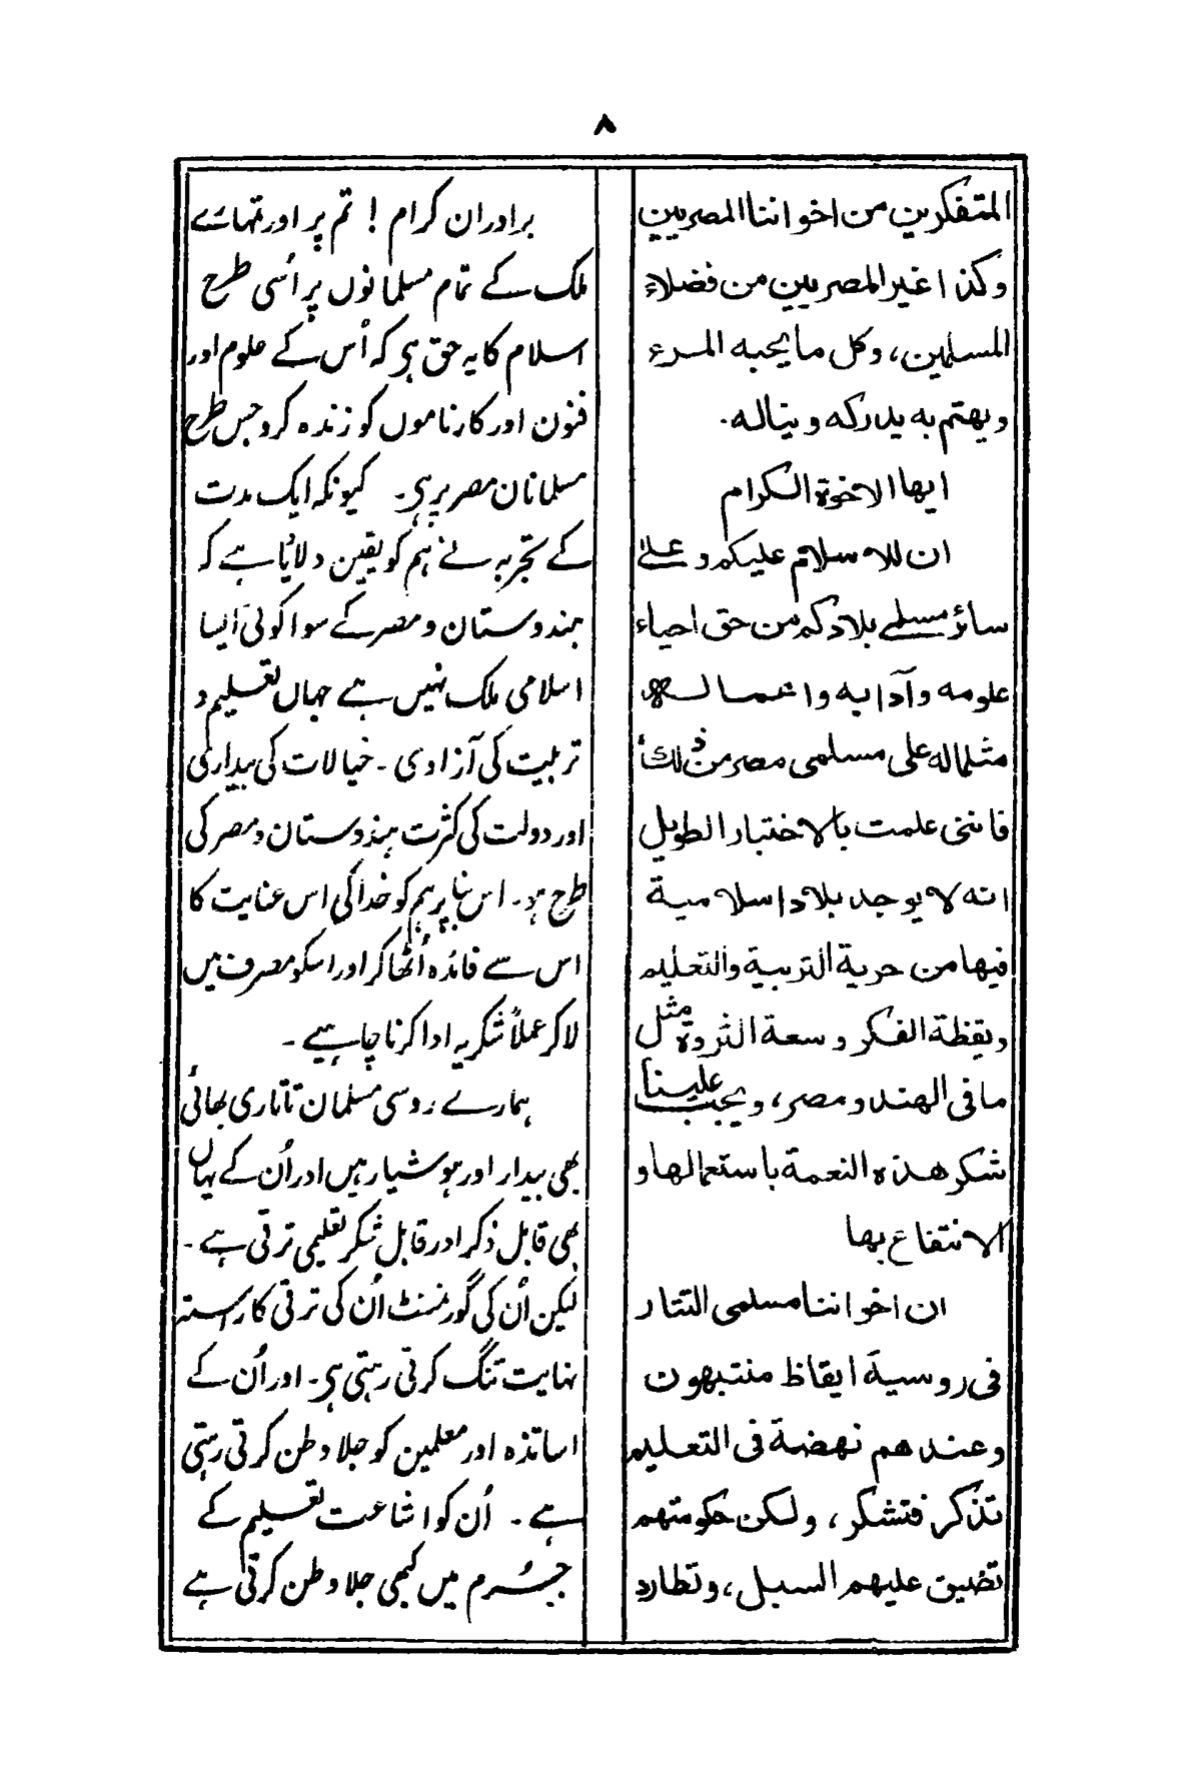 ۸
المتفكرين من اخواننا المصريين
وكذا غير المصريين من فضلاء
المسلمين، وكل ما يحبه المرء
ويهتم به يدركه ويناله.
ايها الاخوة الكرام
ان للاسلام عليكم وعلى
سائر مسلمى بلادكم من حق احياء
علومه وآدابه واعماله
مثلما له على مسلمى مصر من ذلك
فاننى علمت بالاختبار الطويل
انه لا يوجد بلاد اسلامية
فيها من حرية التربية والتعليم
ويقظة الفكر وسعة الثروة مثل
ما فى الهند ومصر، ويجب علينا
شكر هذه النعمة باستعمالها و
الانتفاع بها
ان اخواننا مسلمى التتار
فى روسية ايقاظ منتبهون
وعندهم نهضة فى التعليم
تذكر فتشكر، ولكن حكومتهم
تضيق عليهم السبل، وتطارد
برادران کرام ! تم پر اور تمہارے
ملک کے تمام مسلمانوں پر اُسی طرح
اسلام کا یہ حق ہی کہ اُس کے علوم اور
فنون اور کارناموں کو زندہ کرو جس طرح
مسلمانان مصر پر ہی۔ کیونکہ ایک مدت
کے تجربہ نے ہم کو یقین دلایا ہے کہ
ہندوستان و مصر کے سوا کوئی ایسا
اسلامی ملک نہیں ہے جہاں تعلیم و
تربیت کی آزادی ۔ خیالات کی بیداری
اور دولت کی کثرت ہندوستان و مصر کی
طرح ہو۔ اس بنا پر ہم کو خدا کی اس عنایت کا
اس سے فائدہ اُٹھا کر اور اسکو مصرف میں
لا کر عملاً شکریہ ادا کرنا چاہیے ۔
ہمارے روسی مسلمان تاتاری بھائی
بھی بیدار اور ہوشیار ہیں اور اُن کے یہاں
بھی قابل ذکر اور قابل شکر تعلیمی ترقی ہے ۔
لیکن اُن کی گورنمنٹ اُن کی ترقی کا رستہ
نہایت تنگ کرتی رہتی ہی۔ اور اُن کے
اساتذہ اور معلمین کو جلا وطن کرتی رہتی
ہے ۔ اُن کو اشاعت تعلیم کے
جُرم میں کبھی جلا وطن کرتی ہے